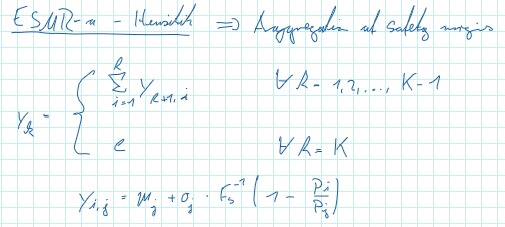 ESMR-a - Heuristik => Aggregation at safety margins
Y_k = { \sum_{i=1}^{k} Y_{k+1,i} ∀ k = 1, 2, ..., K-1
e ∀ k = K
Y_{i,j} = μ_j + σ_j · F_s^{-1} ( 1 - P_i / P_j )